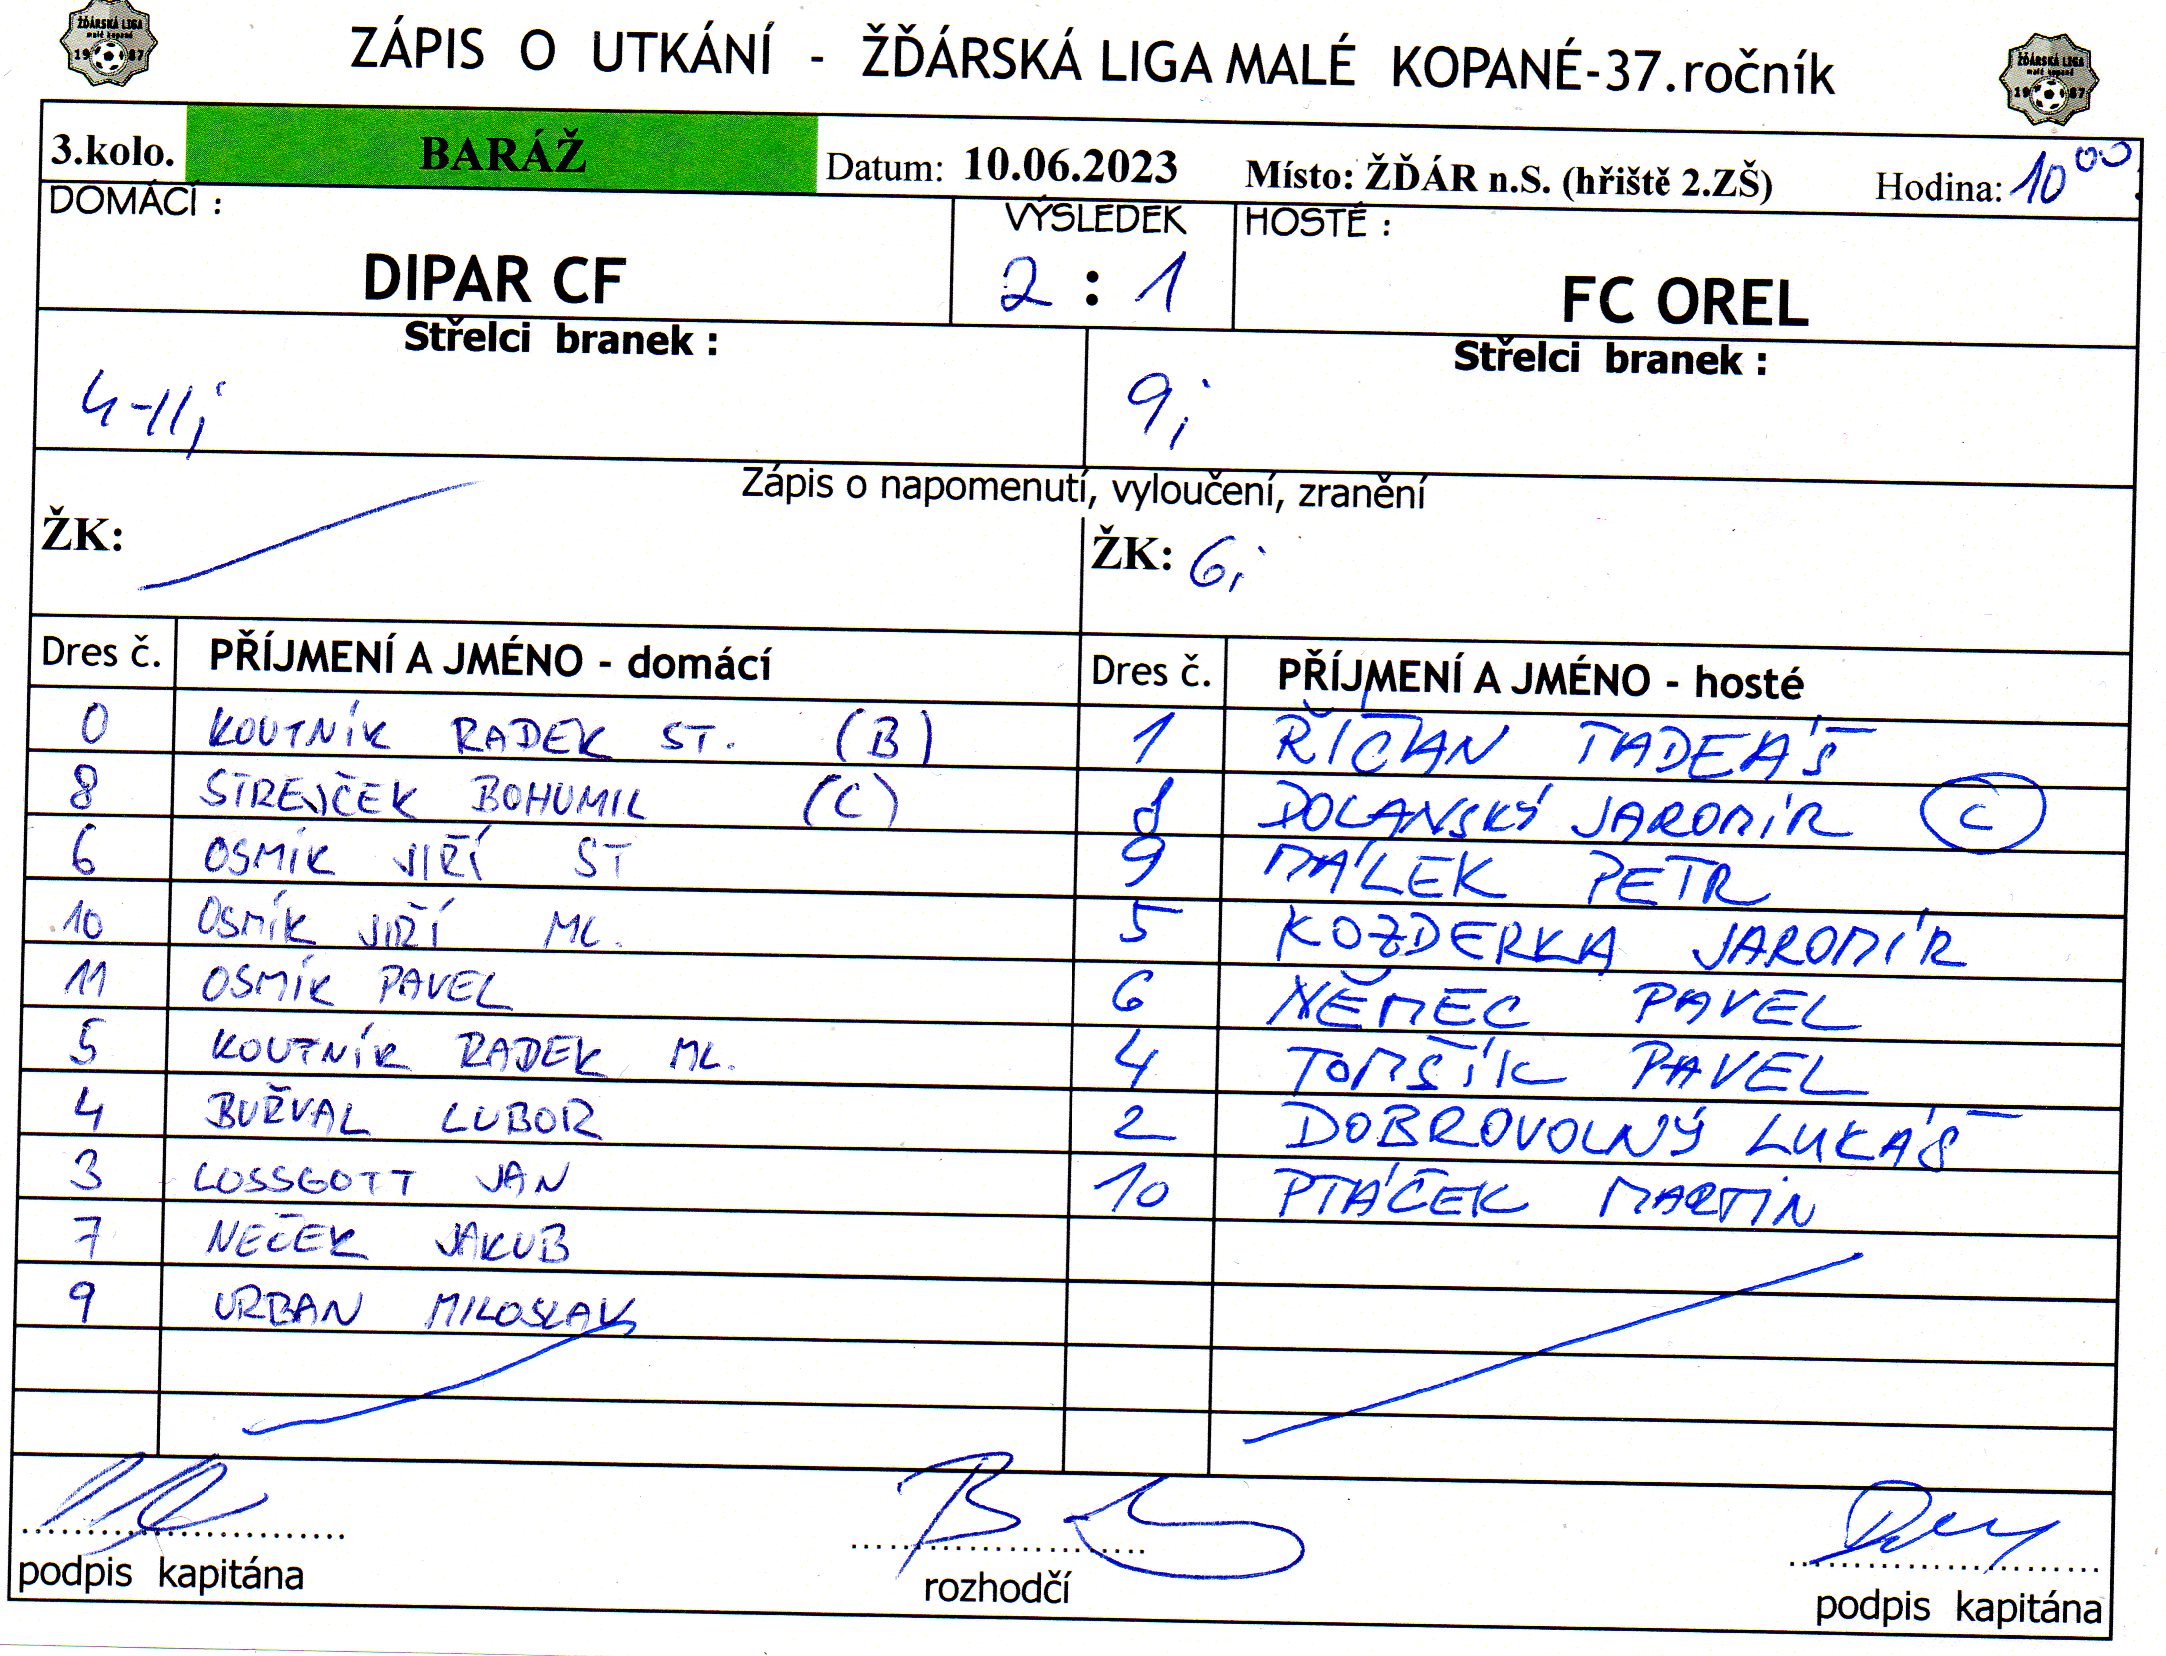 ŽĎÁRSKÁ LIGA
malé kopané
19 87
ZÁPIS O UTKÁNÍ - ŽĎÁRSKÁ LIGA MALÉ KOPANÉ-37.ročník
ŽĎÁRSKÁ LIGA
malé kopané
19 87
3.kolo. BARÁŽ Datum: 10.06.2023 Místo: ŽĎÁR n.S. (hřiště 2.ZŠ) Hodina: 10 00
DOMÁCÍ : VÝSLEDEK HOSTÉ :
DIPAR CF 2 : 1 FC OREL
Střelci branek : Střelci branek :
4-11; 9;
Zápis o napomenutí, vyloučení, zranění
ŽK: ŽK: 6;
Dres č. PŘÍJMENÍ A JMÉNO - domácí Dres č. PŘÍJMENÍ A JMÉNO - hosté
0 KOUTNÍK RADEK ST. (B) 1 ŘÍČAN TADEÁŠ
8 STREJČEK BOHUMIL (C) 8 DOLANSKÝ JAROMÍR C
6 OSMÍK JIŘÍ ST 9 MÁLEK PETR
10 OSMÍK JIŘÍ ML. 5 KOZDERKA JAROMÍR
11 OSMÍK PAVEL 6 NĚMEC PAVEL
5 KOUTNÍK RADEK ML. 4 TOMŠÍK PAVEL
4 BUŘVAL LUBOR 2 DOBROVOLNÝ LUKÁŠ
3 LOSSGOTT JAN 10 PTÁČEK MARTIN
7 NEČEK JAKUB
9 URBAN MILOSLAV
podpis kapitána rozhodčí podpis kapitána